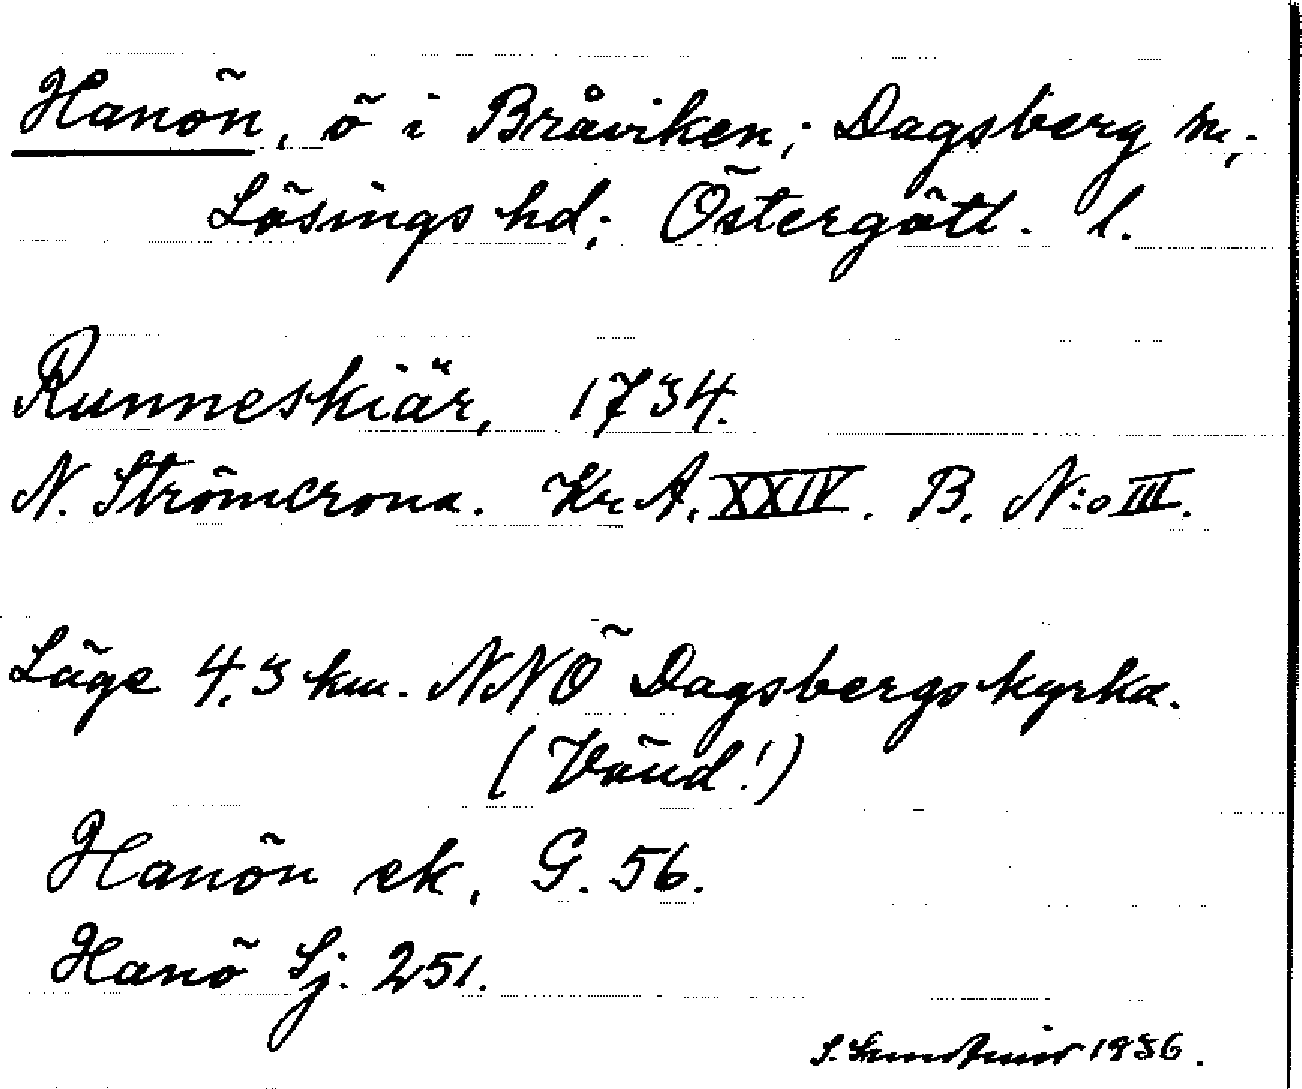 Hanön, ö i Bråviken; Dagsberg sn;
Lösings hd; Östergötl. l.
Runneskiär, 1734.
N. Strömcrona. Kr. A. XXIV. B. N:o III.
Läge 4.3 km. NNÖ Dagsbergs kyrka.
(Vänd!)
Hanön ek. G. 56.
Hanö Sj. 251.
S. 1936.